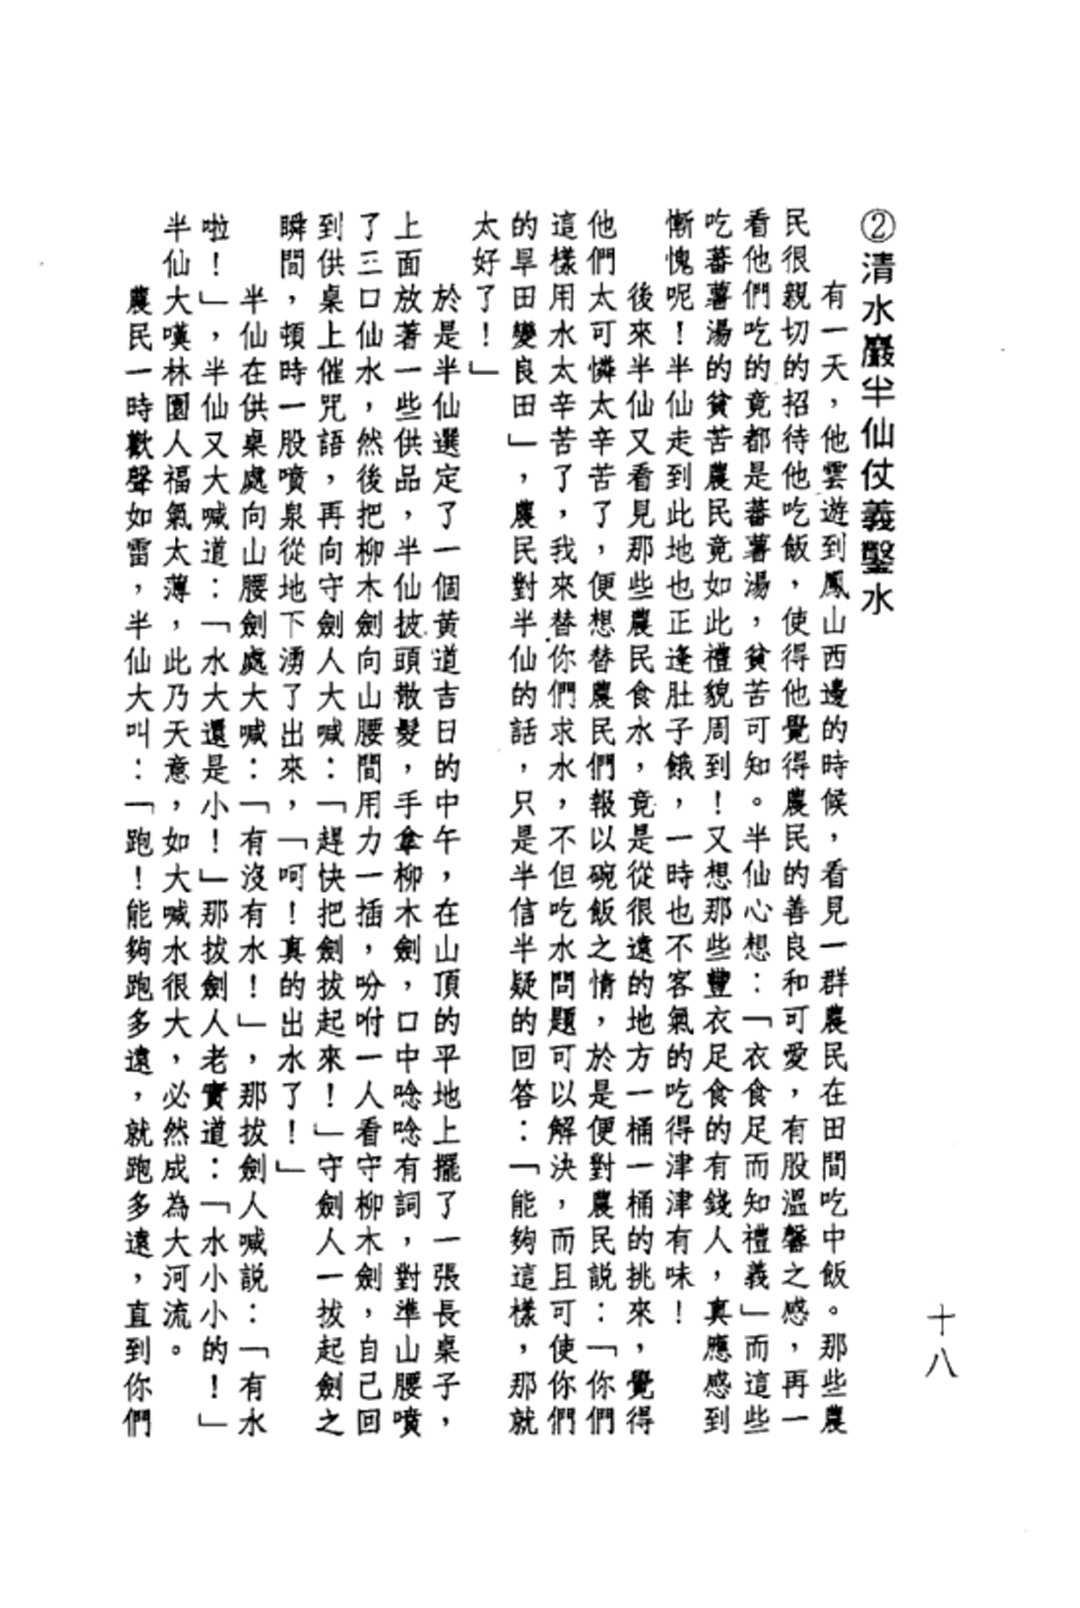 十八
②清水巖半仙仗義鑿水
有一天，他雲遊到鳳山西邊的時候，看見一群農民在田間吃中飯。那些農
民很親切的招待他吃飯，使得他覺得農民的善良和可愛，有股溫馨之感，再一
看他們吃的竟都是蕃薯湯，貧苦可知。半仙心想：「衣食足而知禮義」而這些
吃蕃薯湯的貧苦農民竟如此禮貌周到！又想那些豐衣足食的有錢人，真應感到
慚愧呢！半仙走到此地也正逢肚子餓，一時也不客氣的吃得津津有味！
後來半仙又看見那些農民食水，竟是從很遠的地方一桶一桶的挑來，覺得
他們太可憐太辛苦了，便想替農民們報以碗飯之情，於是便對農民説：「你們
這樣用水太辛苦了，我來替你們求水，不但吃水問題可以解決，而且可使你們
的旱田變良田」，農民對半仙的話，只是半信半疑的回答：「能夠這樣，那就
太好了！」
於是半仙選定了一個黃道吉日的中午，在山頂的平地上擺了一張長桌子，
上面放著一些供品，半仙披頭散髮，手拿柳木劍，口中唸唸有詞，對準山腰噴
了三口仙水，然後把柳木劍向山腰間用力一插，吩咐一人看守柳木劍，自己回
到供桌上催咒語，再向守劍人大喊：「趕快把劍拔起來！」守劍人一拔起劍之
瞬間，頓時一股噴泉從地下湧了出來，「呵！真的出水了！」
半仙在供桌處向山腰劍處大喊：「有沒有水！」，那拔劍人喊説：「有水
啦！」，半仙又大喊道：「水大還是小！」那拔劍人老實道：「水小小的！」
半仙大嘆林園人福氣太薄，此乃天意，如大喊水很大，必然成為大河流。
農民一時歡聲如雷，半仙大叫：「跑！能夠跑多遠，就跑多遠，直到你們